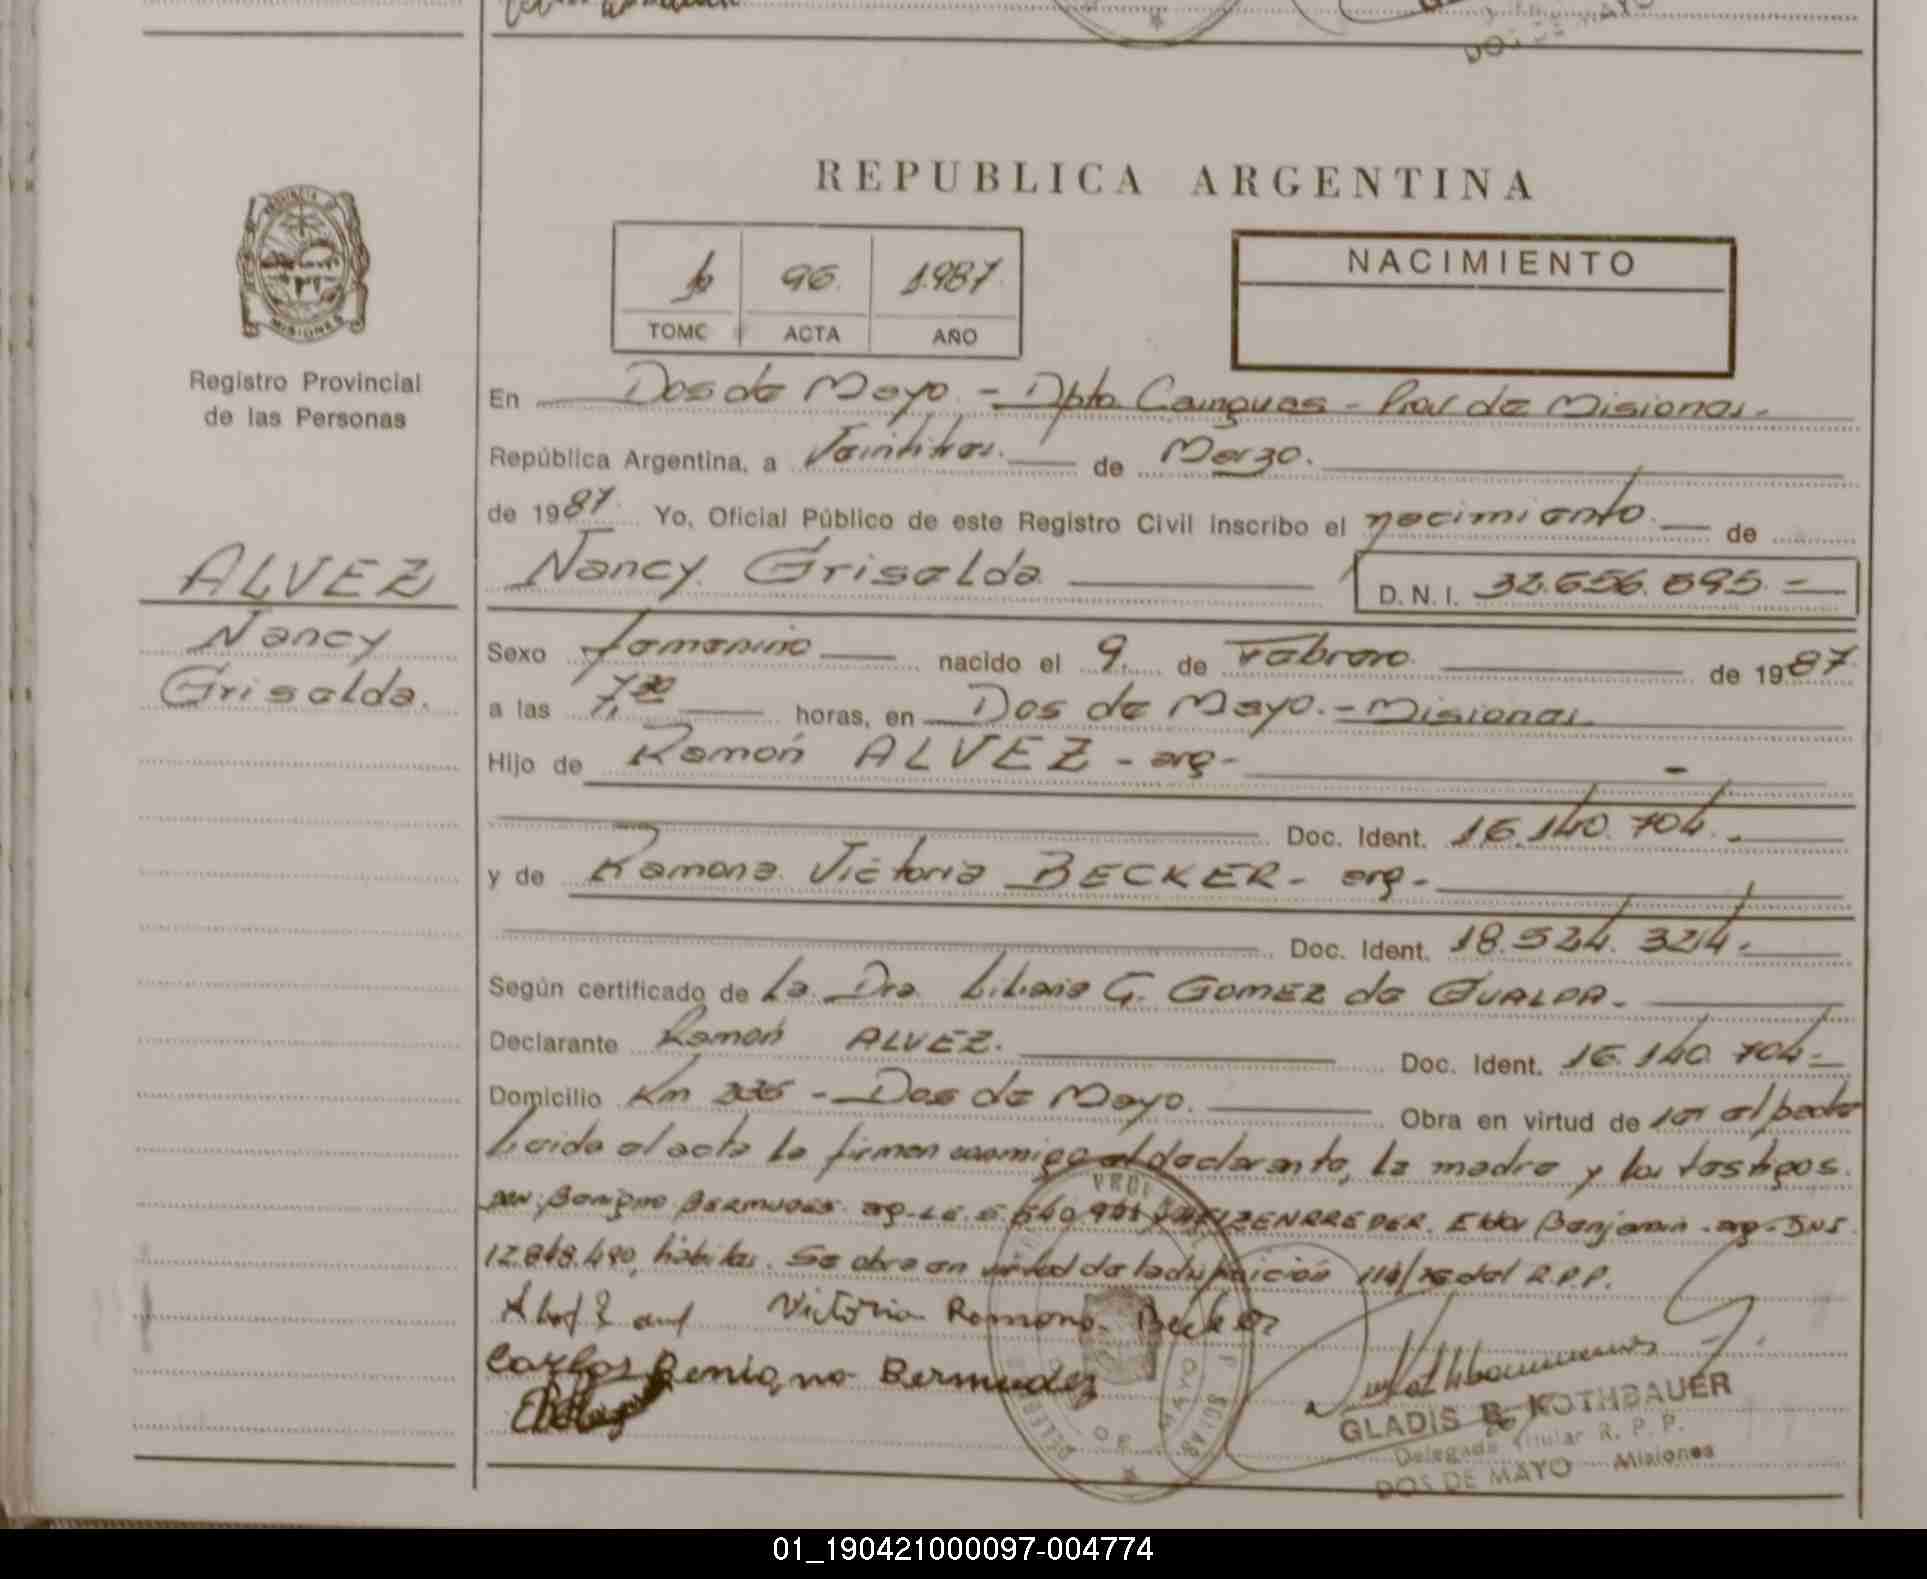 REPUBLICA ARGENTINA
PROVINCIA
MISIONES
Registro Provincial
de las Personas
96 1987
TOMO ACTA AÑO
NACIMIENTO
En Dos de Mayo - Dpto Cainguas - Prov de Misiones.-
República Argentina, a Veintitres. de Marzo.
de 1987. Yo, Oficial Público de este Registro Civil inscribo el nacimiento. de
Nancy Griselda D.N.I. 32.656.695.=
ALVEZ
Nancy
Griselda.
Sexo femenino nacido el 9. de Febrero. de 1987
a las 7,30 horas, en Dos de Mayo.- Misiones
Hijo de Ramón ALVEZ - arg-
Doc. Ident. 16.140.704.-
y de Ramona Victoria BECKER - arg-
Doc. Ident. 18.524.324.-
Según certificado de La Dra. Liliana G. GOMEZ de GUALDA.
Declarante Ramón ALVEZ. Doc. Ident. 16.140.704=
Domicilio Km - Dos de Mayo. Obra en virtud de
Leida el acta la firman conmigo el declarante, la madre y los testigos.
Benigno BERMUDES. arg-L.E. Benjamin -arg- DNI
12.848.490, hábiles. Se obra en virtud de la disposición 114/76 del R.P.P.
Victoria Ramona Becker
Carlos Benigno Bermudez
GLADIS ROTHBAUER
Delegada Titular R. P. P.
DOS DE MAYO Misiones
01_190421000097-004774